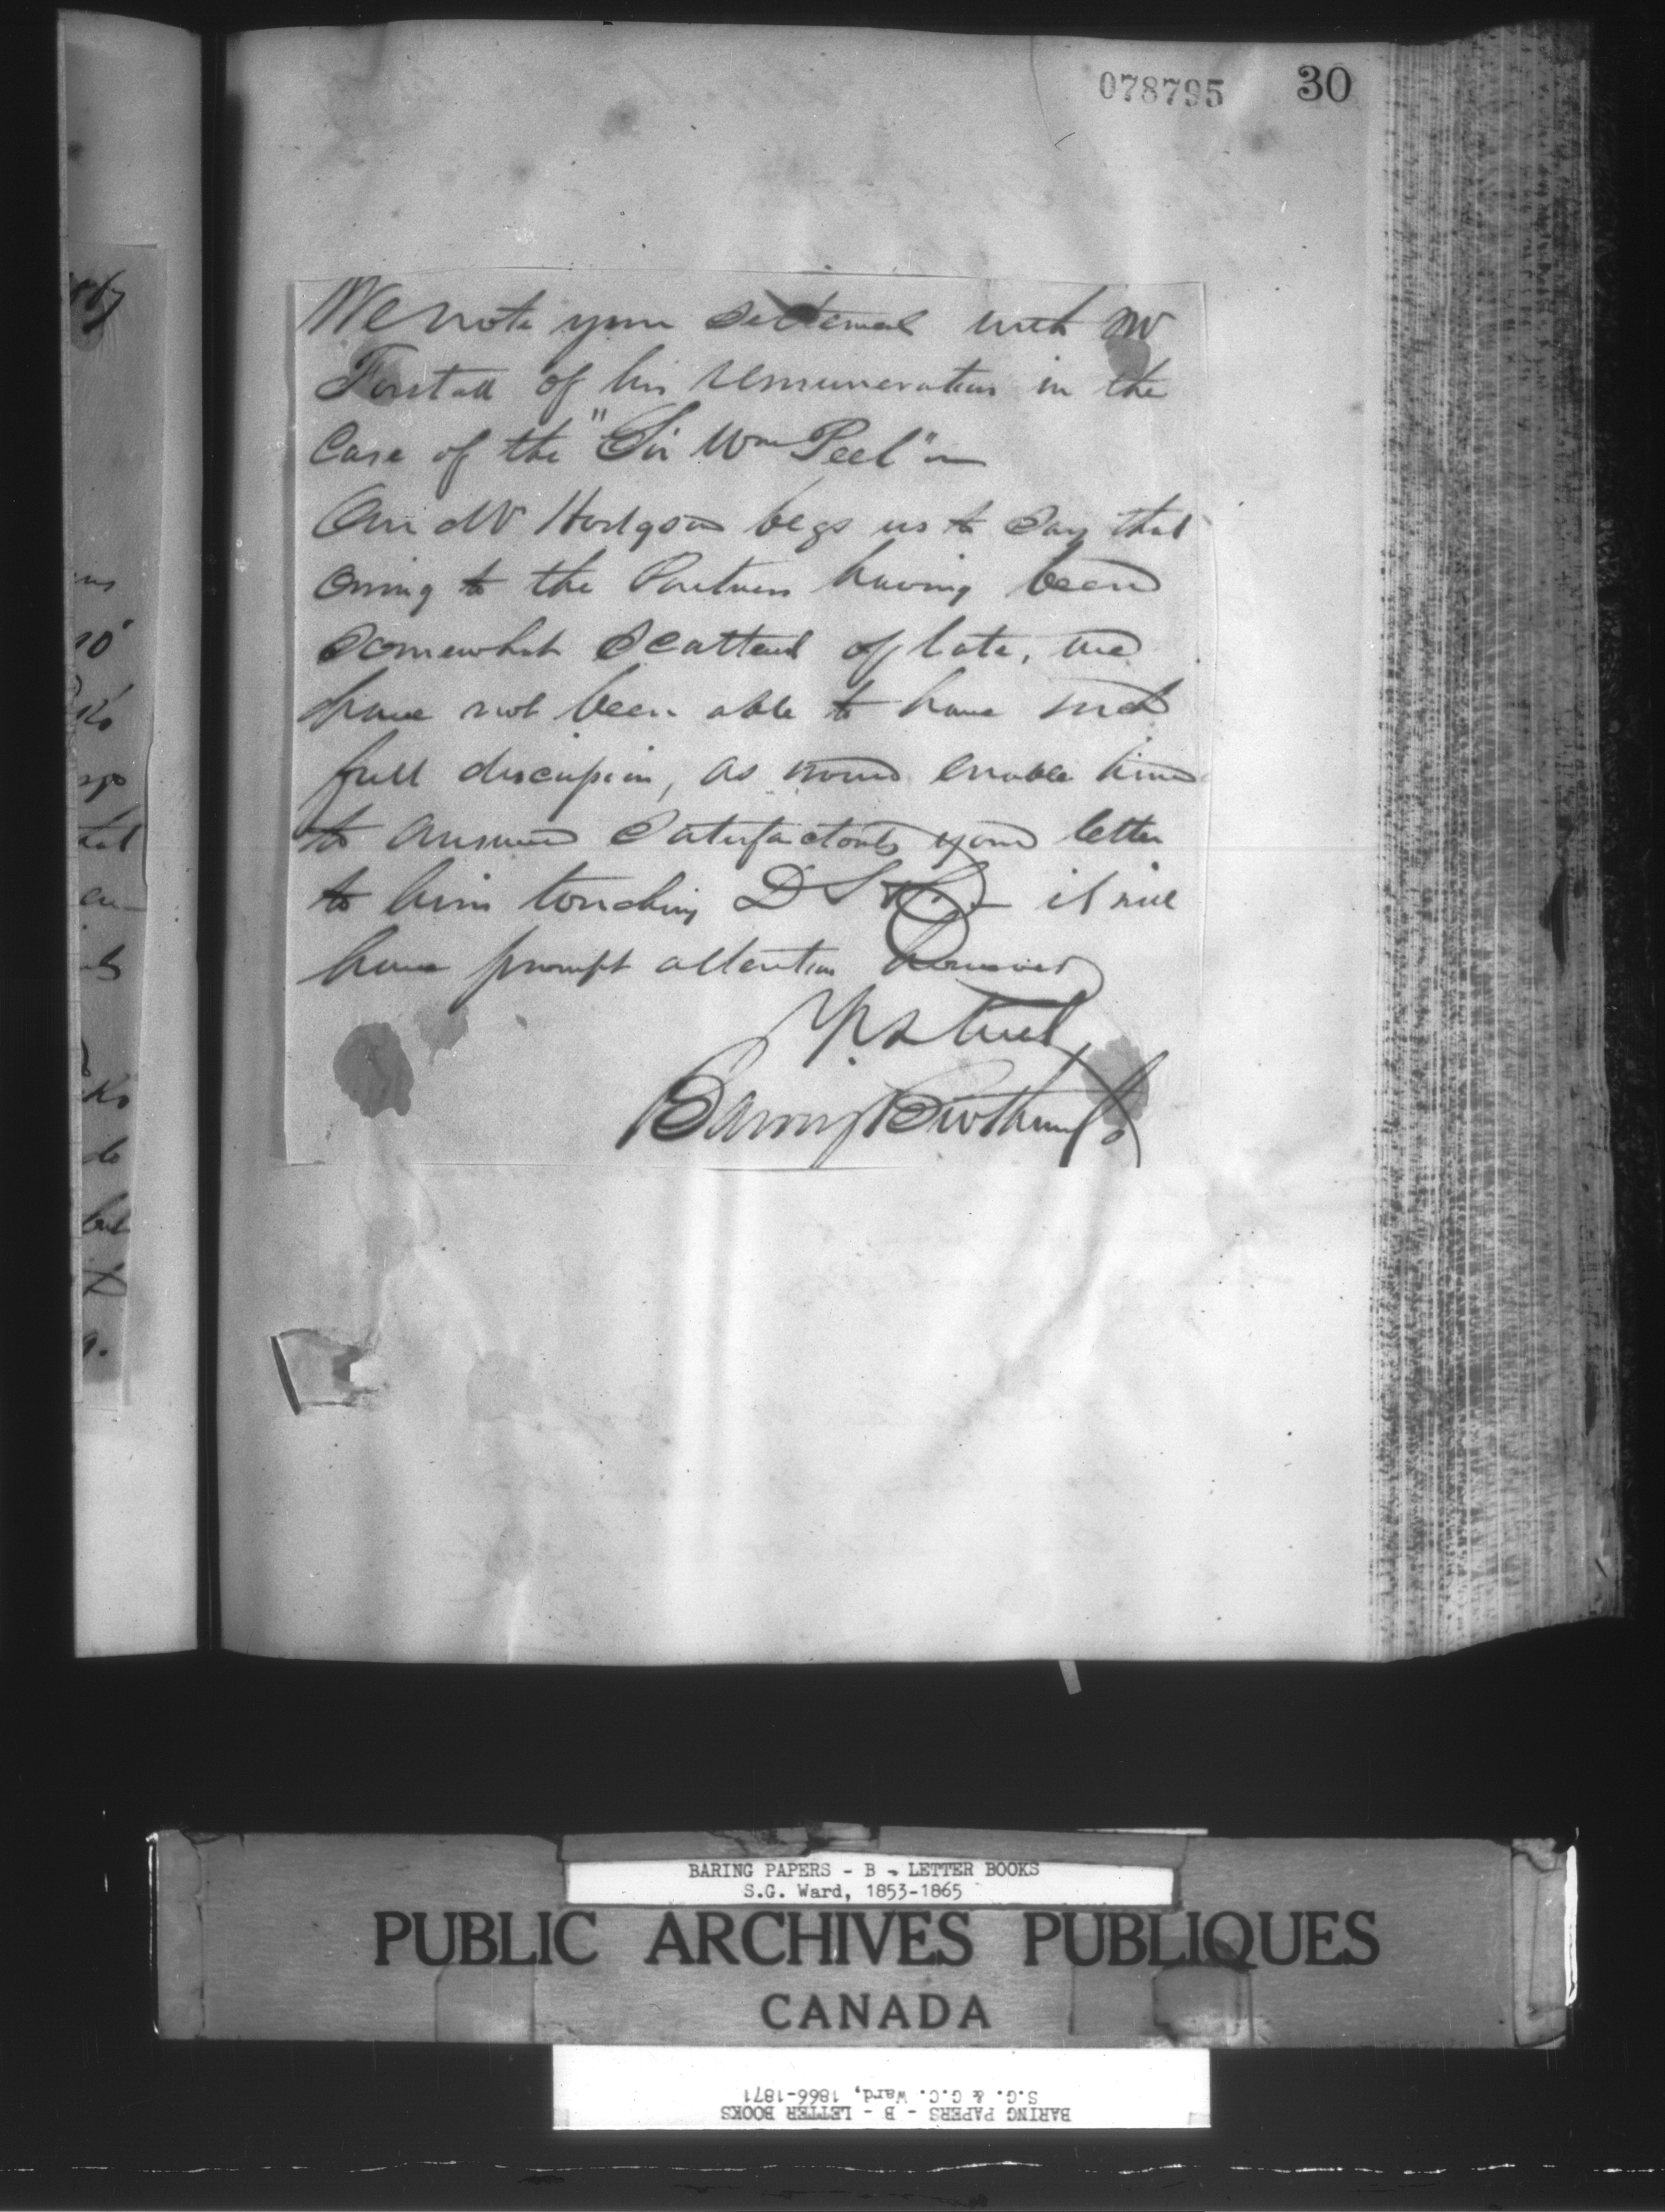 078795 30
We note your settlement with Mr
Forstall of his remuneration in the
Case of the "Sir Wm Peel"
Our Mr Hodgson begs us to say that
owing to the Partners having been
somewhat scattered of late, we
have not been able to have such
full discussion, as would enable him
to answer satisfactorily your letter
to him touching D S & Co — it will
have prompt attention however
Yrs truly
Baring Brothers & Co
BARING PAPERS - B - LETTER BOOKS
S.G. Ward, 1853-1865
PUBLIC ARCHIVES PUBLIQUES
CANADA
BARING PAPERS - B - LETTER BOOKS
S.G. & G.C. Ward, 1866-1871